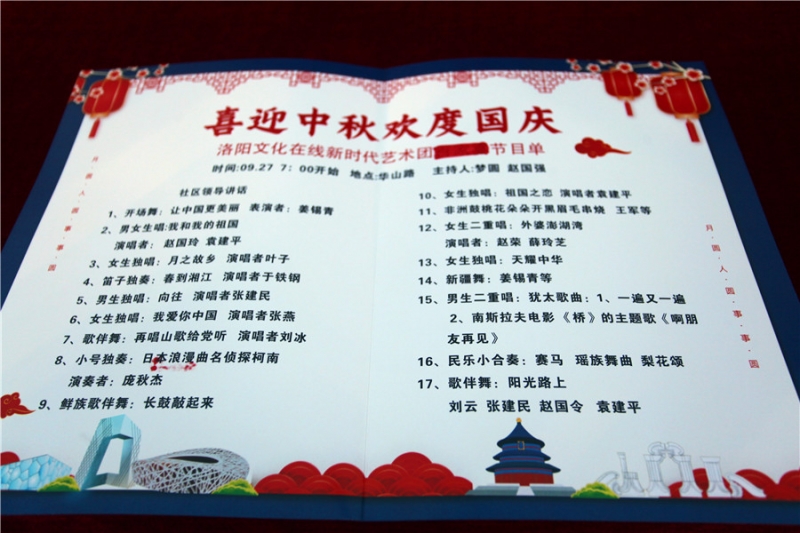 喜迎中秋欢度国庆
洛阳文化在线新时代艺术团 节目单
时间:09.27 7：00开始 地点:华山路 主持人:梦圆 赵国强
社区领导讲话
1、开场舞：让中国更美丽 表演者：姜锡青
2、男女生唱:我和我的祖国
演唱者：赵国玲 袁建平
3、女生独唱：月之故乡 演唱者叶子
4、笛子独奏：春到湘江 演唱者于铁钢
5、男生独唱：向往 演唱者张建民
6、女生独唱：我爱你中国 演唱者张燕
7、歌伴舞：再唱山歌给党听 演唱者刘冰
8、小号独奏：日本浪漫曲名侦探柯南
演奏者：庞秋杰
9、鲜族歌伴舞：长鼓敲起来
10、女生独唱：祖国之恋 演唱者袁建平
11、非洲鼓桃花朵朵开黑眉毛串烧 王军等
12、女生二重唱：外婆澎湖湾
演唱者：赵荣 薛玲芝
13、女生独唱：天耀中华
14、新疆舞：姜锡青等
15、男生二重唱：犹太歌曲：1、一遍又一遍
2、南斯拉夫电影《桥》的主题歌《啊朋
友再见》
16、民乐小合奏：赛马 瑶族舞曲 梨花颂
17、歌伴舞：阳光路上
刘云 张建民 赵国令 袁建平
月·圆·人·圆·事·事·圆
月·圆·人·圆·事·事·圆